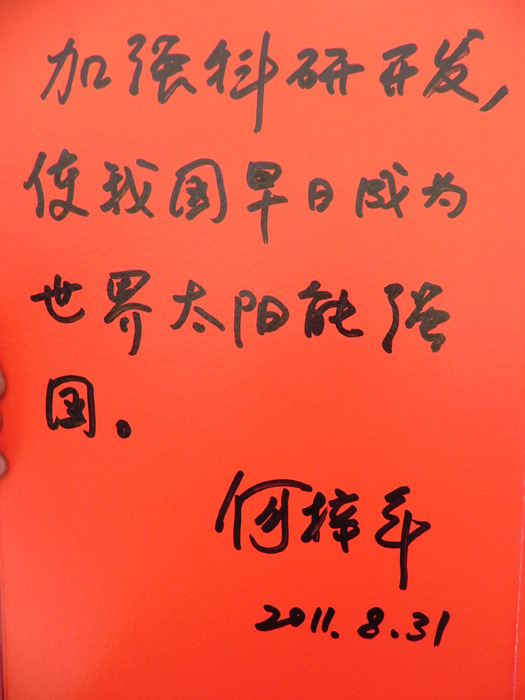 加强科研开发,
使我国早日成为
世界太阳能强
国。
何梓年
2011.8.31